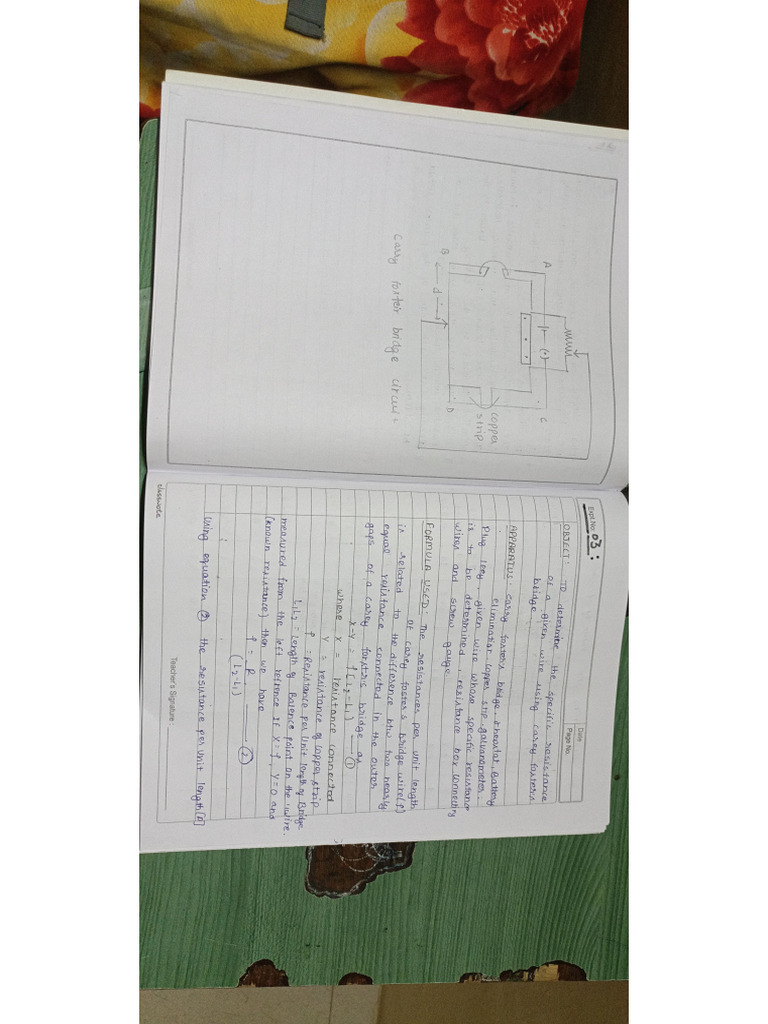 A
C
B
D
d
(•)
copper
strip
Carry foster bridge circui
Expt. No. 03 :
Date
Page No.
OBJECT : TO determine the specific resistance
of a given wire using carey fosters
bridge
APPARATUS: carry fosters bridge, rheostat, Battery
eliminator copper stip galvanometer
Plug key, given wire whose specific resistance
is to be determined, resistance box connecting
wires and screw gauge
FORMULA USED: The resistances per unit length
of carey foster's bridge wire (ρ)
is related to the difference btw two nearly
equal resistance connected in the outer
gaps of a carey forsters bridge as
x-y = ρ(L2-L1) — ①
where x = resistance connected
y = resistance of copper strip
ρ = Resistance per unit length of Bridge
L1L2 = Length of Balence point on the wire.
measured from the left refrence if x = ρ, y=0 and
(known resistance) then we have
ρ = R — ②
(L2-L1)
using equation ② the resistance per unit length [ρ]
classmate
Teacher's Signature :